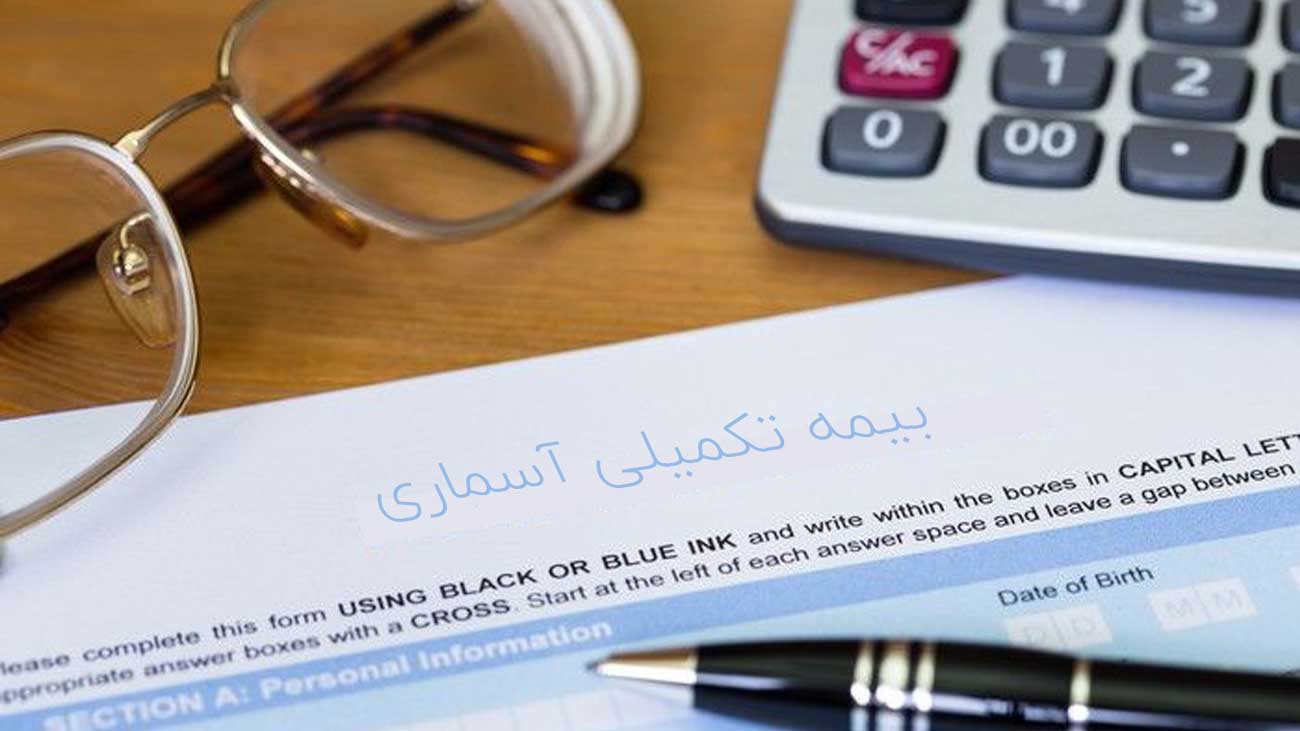 4 5
C/AC 1 2
0 00 .
بیمه تکمیلی آسماری
lease complete this form USING BLACK OR BLUE INK and write within the boxes in CAPITAL LETT
ppropriate answer boxes with a CROSS. Start at the left of each answer space and leave a gap between
SECTION A: Personal Information
Date of Birth
D D M M